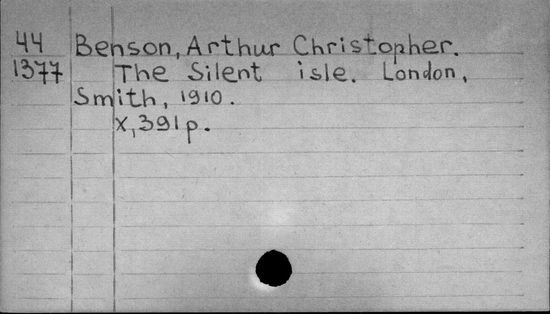 44 Benson, Arthur Christopher.
1377 The Silent isle. London,
Smith, 1910.
X, 391 p.